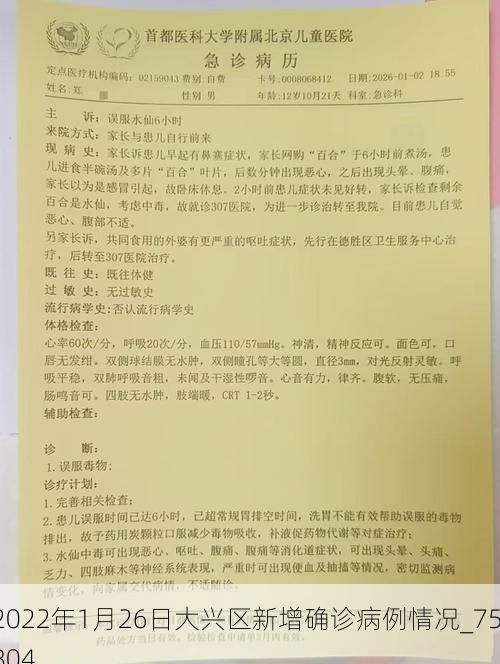 首都医科大学附属北京儿童医院
急诊病历
定点医疗机构编码: 02159043 费别:自费 卡号:0008068412 日期:2026-01-02 18:55
姓名:郑 性别:男 年龄:12岁10月21天 科室:急诊科
主 诉: 误服水仙6小时
来院方式: 家长与患儿自行前来
现 病 史: 家长诉患儿早起有鼻塞症状, 家长网购“百合”于6小时前煮汤, 患
儿进食半碗汤及多片“百合”叶片, 后数分钟出现恶心, 之后出现头晕、腹痛,
家长以为是感冒引起, 故卧床休息。2小时前患儿症状未见好转, 家长诉检查剩余
百合是水仙, 考虑中毒, 故就诊307医院, 为进一步诊治转至我院。目前患儿自觉
恶心、腹部不适。
另家长诉, 共同食用的外婆有更严重的呕吐症状, 先行在德胜区卫生服务中心治
疗, 后转至307医院治疗。
既 往 史: 既往体健
过 敏 史: 无过敏史
流行病学史:否认流行病学史
体格检查:
心率60次/分, 呼吸20次/分, 血压110/57mmHg。神清, 精神反应可。面色可, 口
唇无发绀。双侧球结膜无水肿, 双侧瞳孔等大等圆, 直径3mm, 对光反射灵敏。呼
吸平稳, 双肺呼吸音粗, 未闻及干湿性啰音。心音有力, 律齐。腹软, 无压痛,
肠鸣音可。四肢无水肿, 肢端暖, CRT 1-2秒。
辅助检查:
诊 断:
1.误服毒物;
诊疗计划:
1.完善相关检查;
2.患儿误服时间已达6小时, 已超常规胃排空时间, 洗胃不能有效帮助误服的毒物
排出, 故予药用炭颗粒口服减少毒物吸收, 补液促药物代谢等对症治疗;
3.水仙中毒可出现恶心、呕吐、腹痛、腹痛等消化道症状, 可出现头晕、头痛、
乏力、四肢麻木等神经系统表现, 严重时可出现便血及抽搐等情况, 密切监测病
情变化, 向家属交代病情, 不适随诊。
2022年1月26日大兴区新增确诊病例情况_75
804
药品处方当日有效, 检验检查申请单3月内有效。